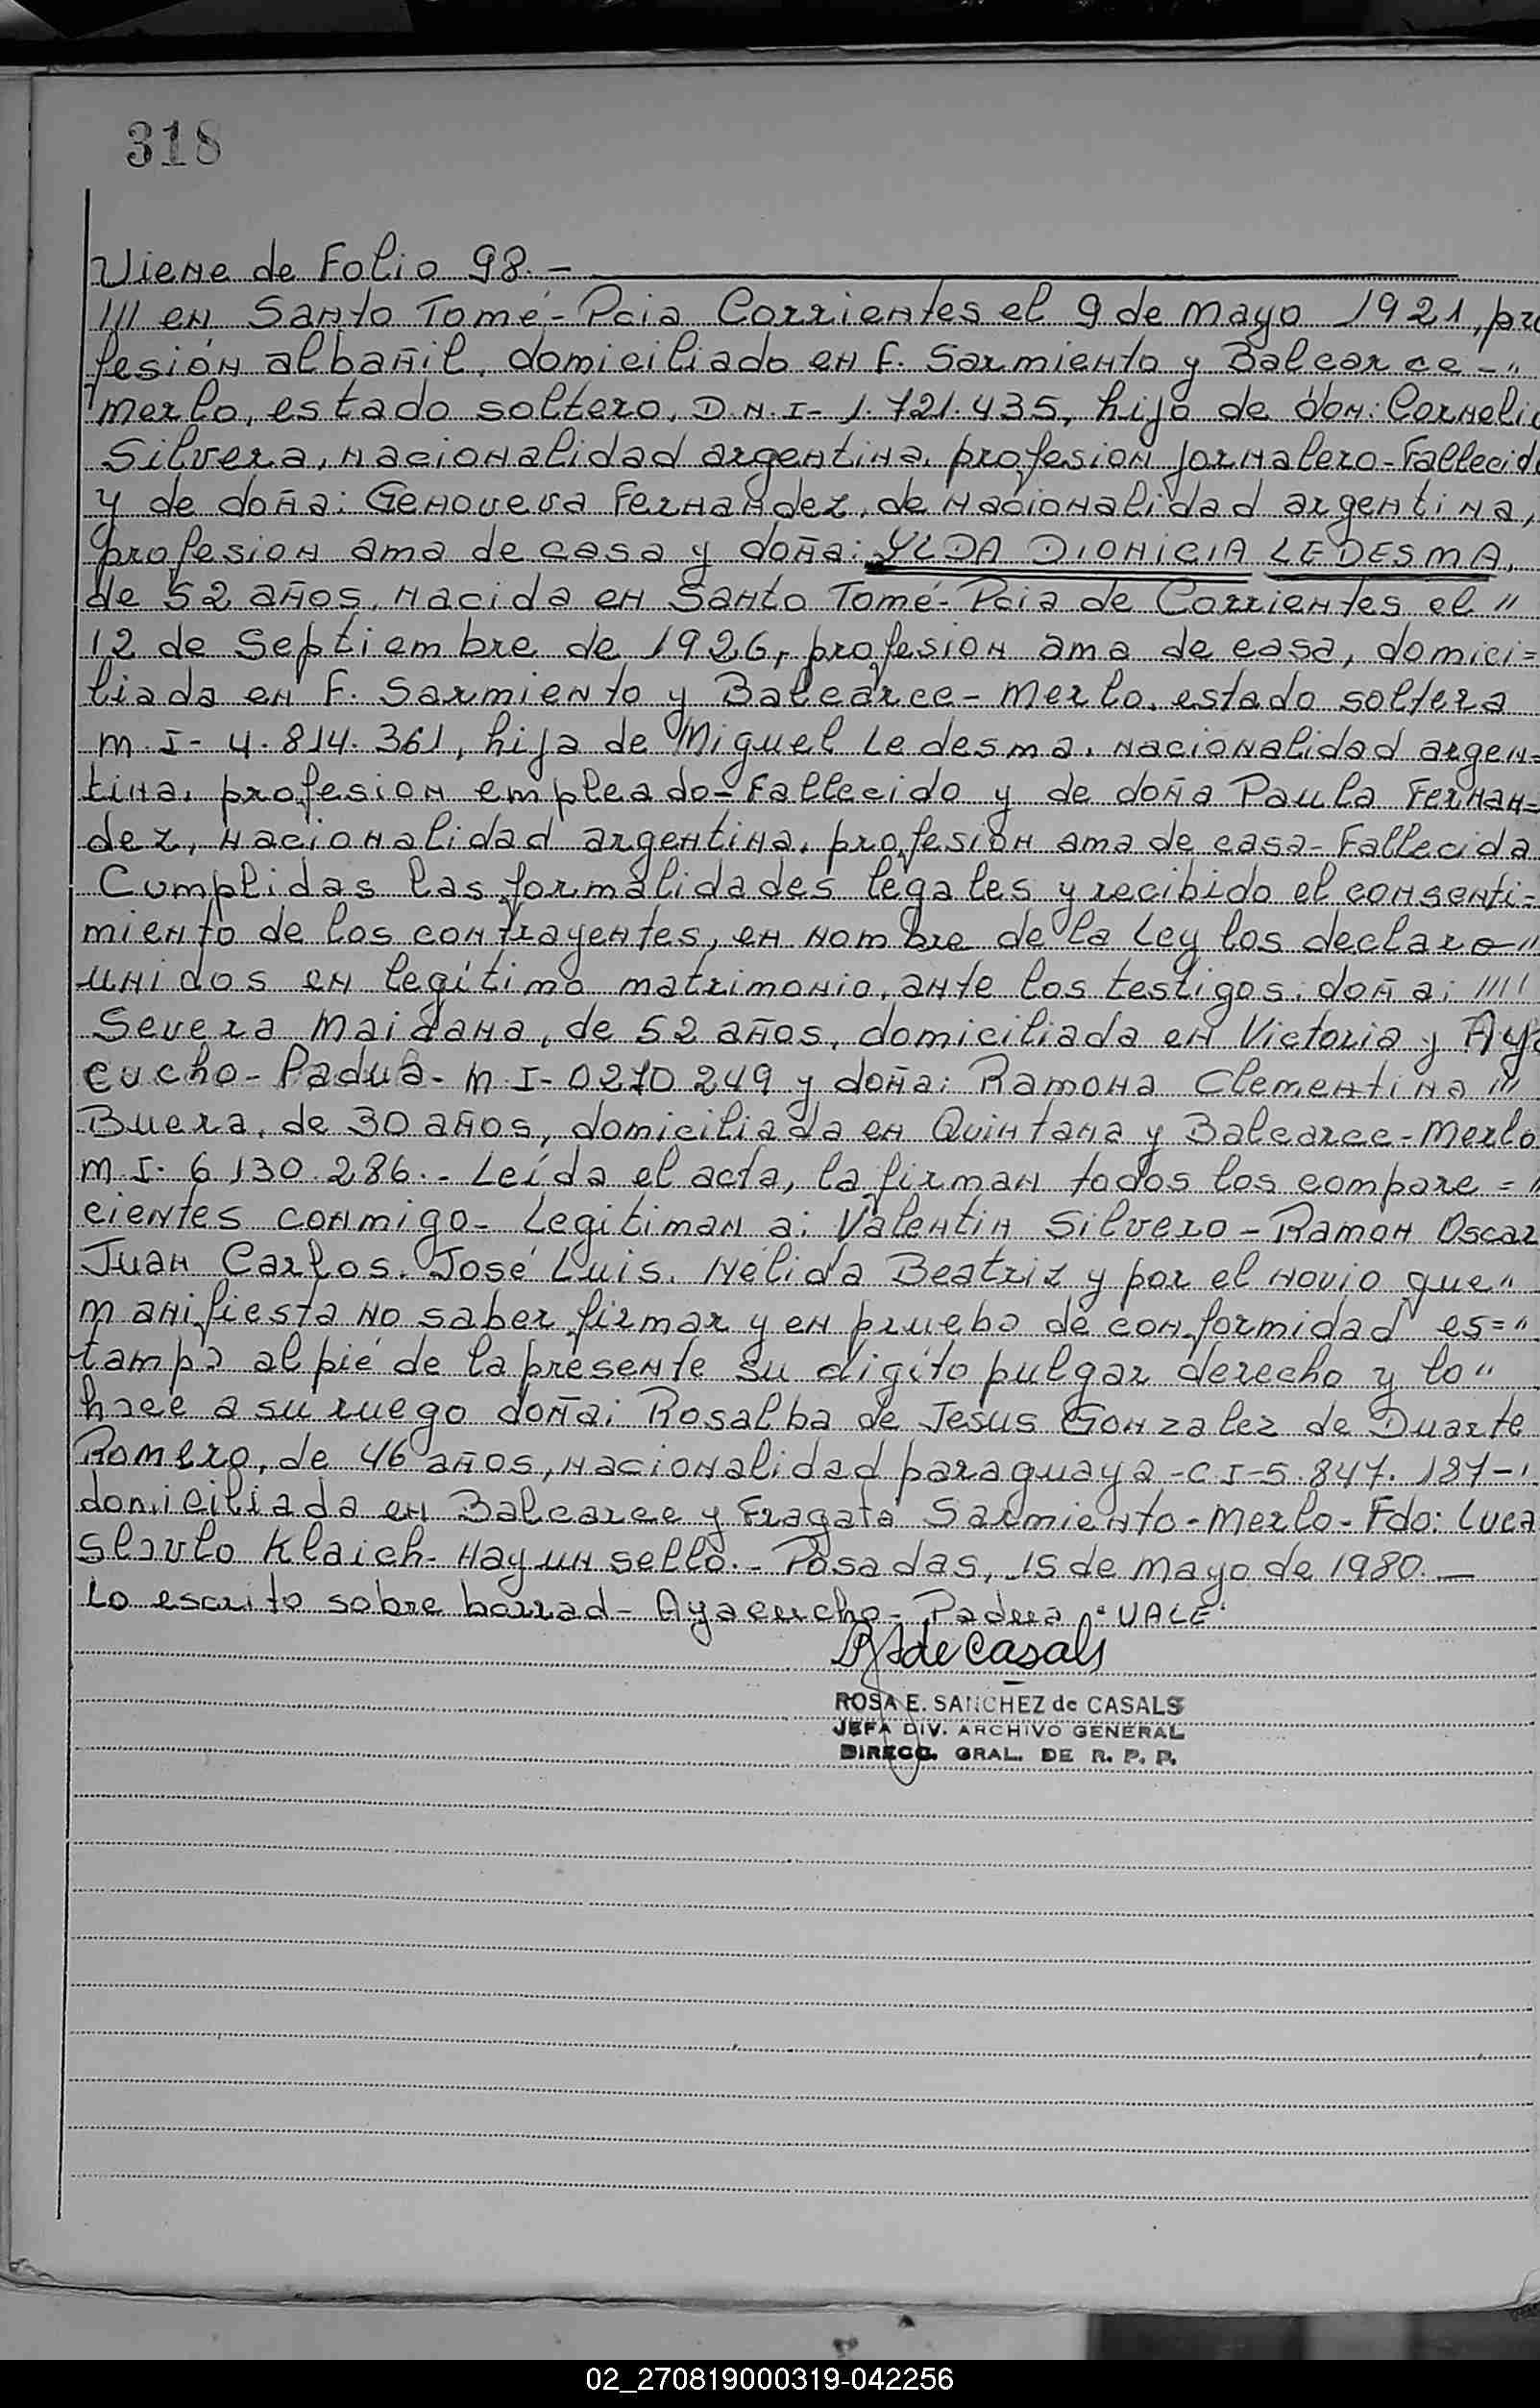 318
Viene de Folio 98.-
/// en Santo Tomé- Pcia Corrientes el 9 de mayo 1921, pro
fesión albañil, domiciliado en F. Sarmiento y Balcarce -"
merlo, estado soltero, D.N.I- 1.721.435, hijo de don: Cornelio
Silvera, nacionalidad argentina, profesion jornalero-Fallecido
y de doña: Genoveva Fernandez, de nacionalidad argentina,
profesion ama de casa y doña: YLDA DIONICIA LEDESMA,
de 52 años, nacida en Santo Tomé- Pcia de Corrientes el "
12 de Septiembre de 1926, profesion ama de casa, domici=
liada en F. Sarmiento y Balcarce- merlo, estado soltera
m.I- 4.814.361, hija de Miguel Ledesma, nacionalidad argen=
tina, profesion empleado-Fallecido y de doña Paula Fernan=
dez, nacionalidad argentina, profesion ama de casa-Fallecida
Cumplidas las formalidades legales y recibido el consenti=
miento de los contrayentes, en nombre de la Ley los declaro-"
unidos en legítimo matrimonio, ante los testigos: doña: ////
Severa Maidana, de 52 años, domiciliada en Victoria y Aya
cucho- Padua- m.I-0270249 y doña: Ramona Clementina "'
Buera, de 30 años, domiciliada en Quintana y Balcarce-merlo
m.I- 6.130.286.- Leída el acta, la firman todos los compare="
cientes conmigo- Legitiman a: Valentin Silvero-Ramon Oscar
Juan Carlos. José Luis. Nélida Beatriz y por el novio que"
manifiesta no saber firmar y en prueba de conformidad es="
tampa al pié de la presente su digito pulgar derecho y lo"
hace a su ruego doña: Rosalba de Jesus Gonzalez de Duarte
Romero, de 46 años, nacionalidad paraguaya-C.I-5.847.187-'
domiciliada en Balcarce y Fragata Sarmiento-merlo-Fdo: Luca
Slavlo Klaich- Hay un sello.- Posadas, 15 de mayo de 1980.-
Lo escrito sobre borrad- Ayacucho- Padua "VALE"
R S de Casals
ROSA E. SANCHEZ de CASALS
JEFA DIV. ARCHIVO GENERAL
DIRECC. GRAL. DE R. P. P.
02_270819000319-042256